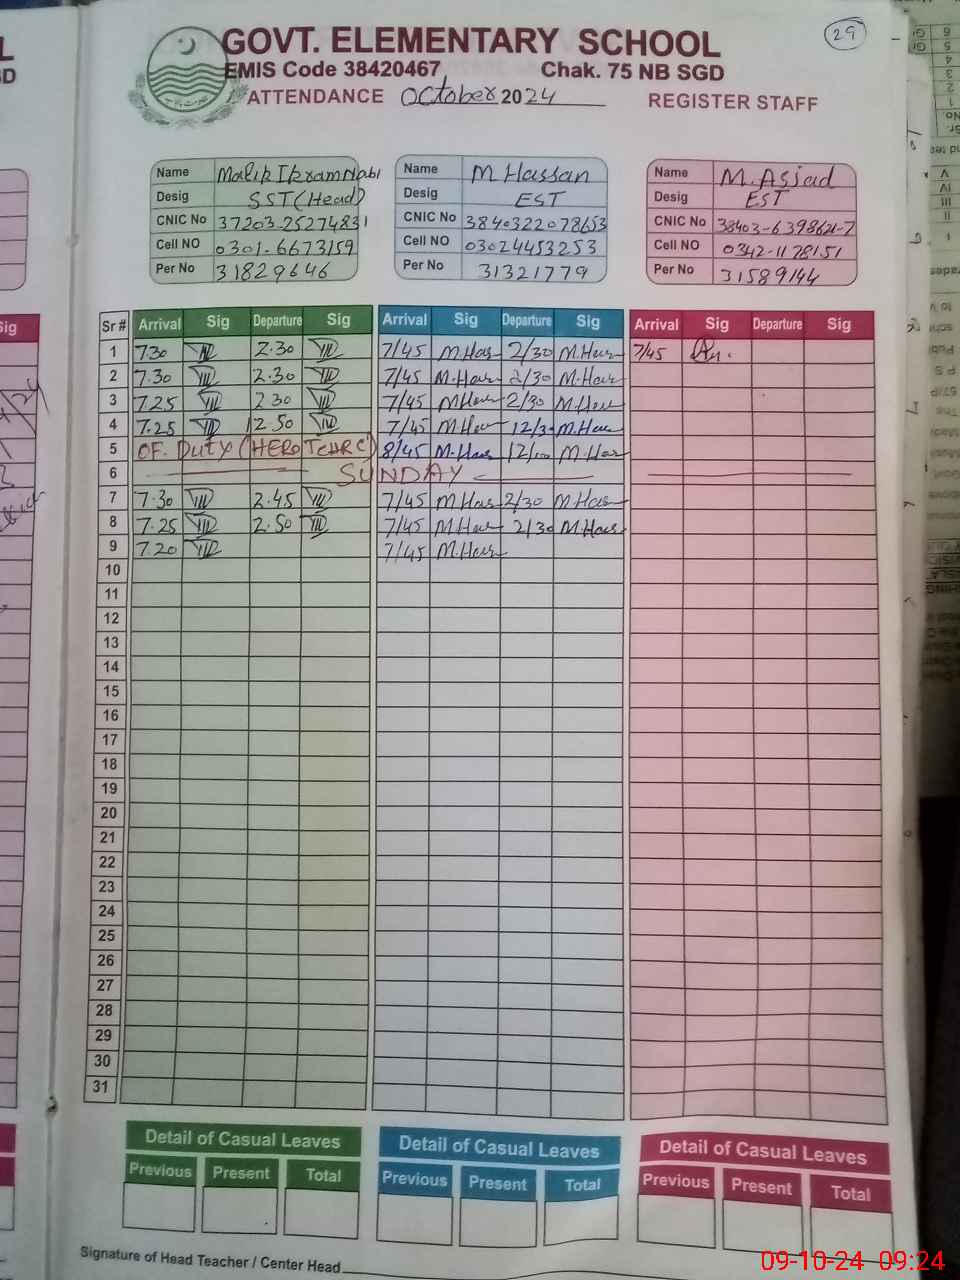 29
GOVT. ELEMENTARY SCHOOL
EMIS Code 38420467 Chak. 75 NB SGD
ATTENDANCE October 2024 REGISTER STAFF
Name Malik Ikram Nabi
Desig SST (Head)
CNIC No 37203-25274831
Cell NO 0301-6673159
Per No 31829646
Name M Hassan
Desig EST
CNIC No 3840322078653
Cell NO 03024453253
Per No 31321779
Name M. Asjad
Desig EST
CNIC No 38403-6398621-7
Cell NO 0342-1178151
Per No 31589144
Sr # Arrival Sig Departure Sig Arrival Sig Departure Sig Arrival Sig Departure Sig
1 7.30 2.30 7/45 M.Has 2/30 M.Has 7/45
2 7.30 2.30 7/45 M.Has 2/30 M.Has
3 7.25 2 30 7/45 M.Has 2/30 M.Has
4 7.25 12 50 7/45 M.Has 12/30 M.Has
5 OF. DUTY ( 8/45 M.Has 12/00 M.Has
6 SUNDAY
7 7.30 2.45 7/45 M.Has 2/30 M.Has
8 7.25 2.50 7/45 M.Has 2/30 M.Has
9 7.20 7/45 M.Has
10
11
12
13
14
15
16
17
18
19
20
21
22
23
24
25
26
27
28
29
30
31
Detail of Casual Leaves Detail of Casual Leaves Detail of Casual Leaves
Previous Present Total Previous Present Total Previous Present Total
Signature of Head Teacher / Center Head
09-10-24 09:24